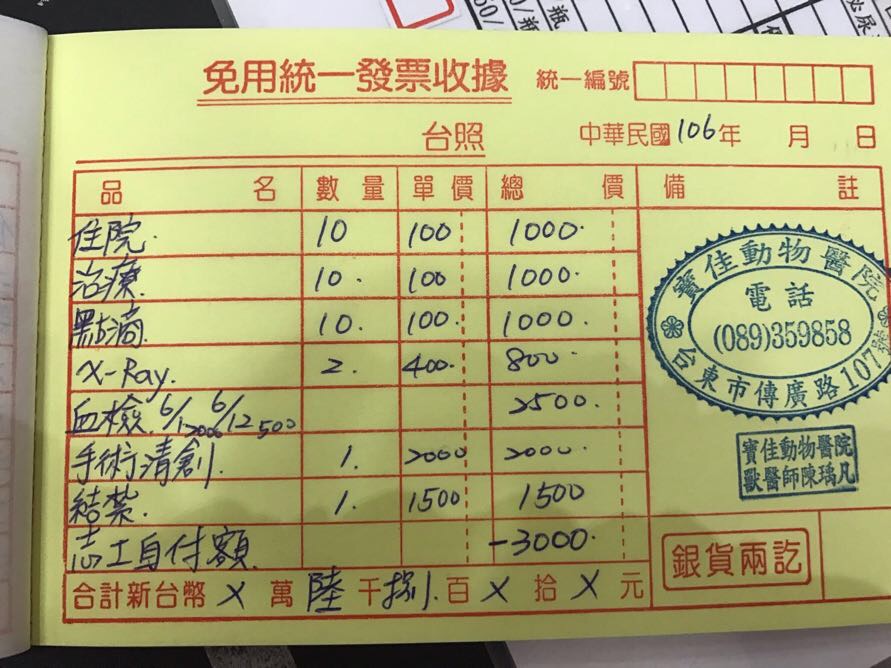 免用統一發票收據 統一編號
台照 中華民國106年 月 日
品名 數量 單價 總價 備註
住院. 10 100 1000.
治療. 10. 100 1000.
點滴. 10. 100. 1000.
X-Ray. 2. 400. 800.
血檢. 6/1 2000 6/12 500 2500.
手術清創. 1. 2000 2000.
結紮. 1. 1500 1500
志工自付額 -3000.
合計新台幣 X 萬 陸 千 捌 百 X 拾 X 元
寶佳動物醫院
電話
(089)359858
台東市傳廣路107號
寶佳動物醫院
獸醫師陳瑀凡
銀貨兩訖